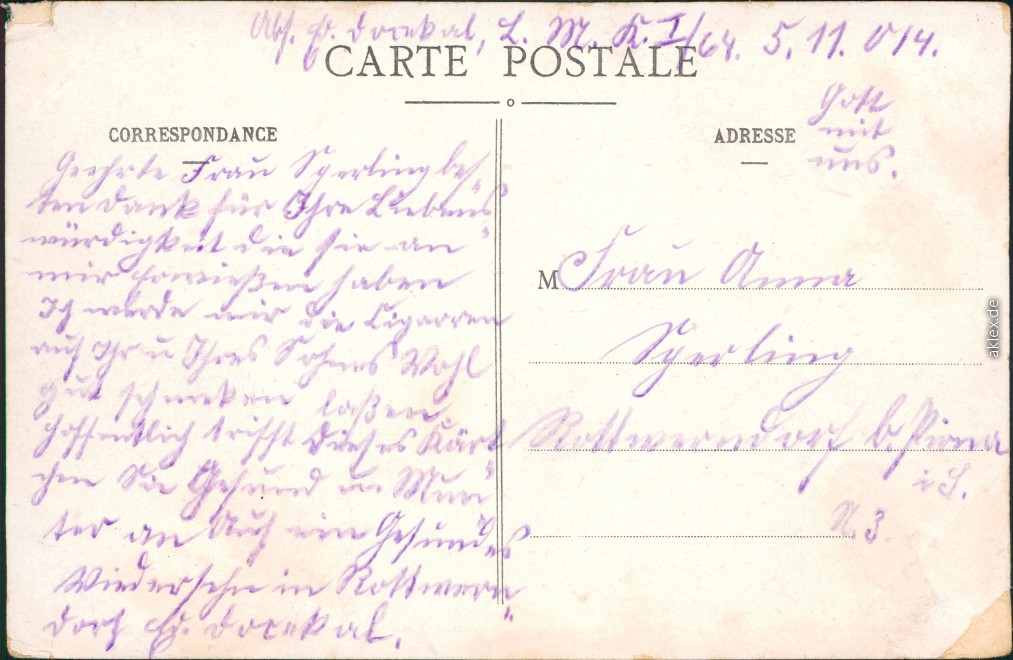 Abs. Ed. Dorekal, L. M. K. I/64. 5. 11. 014.
CARTE POSTALE
CORRESPONDANCE
ADRESSE
Gott
mit
uns.
Geehrte Frau Sperling bes
ten Dank für Ihre Liebens
würdigkeit die sie an
mir erwießen haben
Ich werde mir die Cigarren
auf Ihr u Ihres Sohnes Wohl
gut schmeken laßen.
Hoffentlich trifft dieses Kärt
chen Sie Gesund u Mun
ter an Auf ein Gesundes
Wiedersehn in Rottwern
dorf Ed. Dorekal.
M Frau Anna
Sperling
Rottwerndorf b. Pirna
i S.
N. 3.
aklex.de